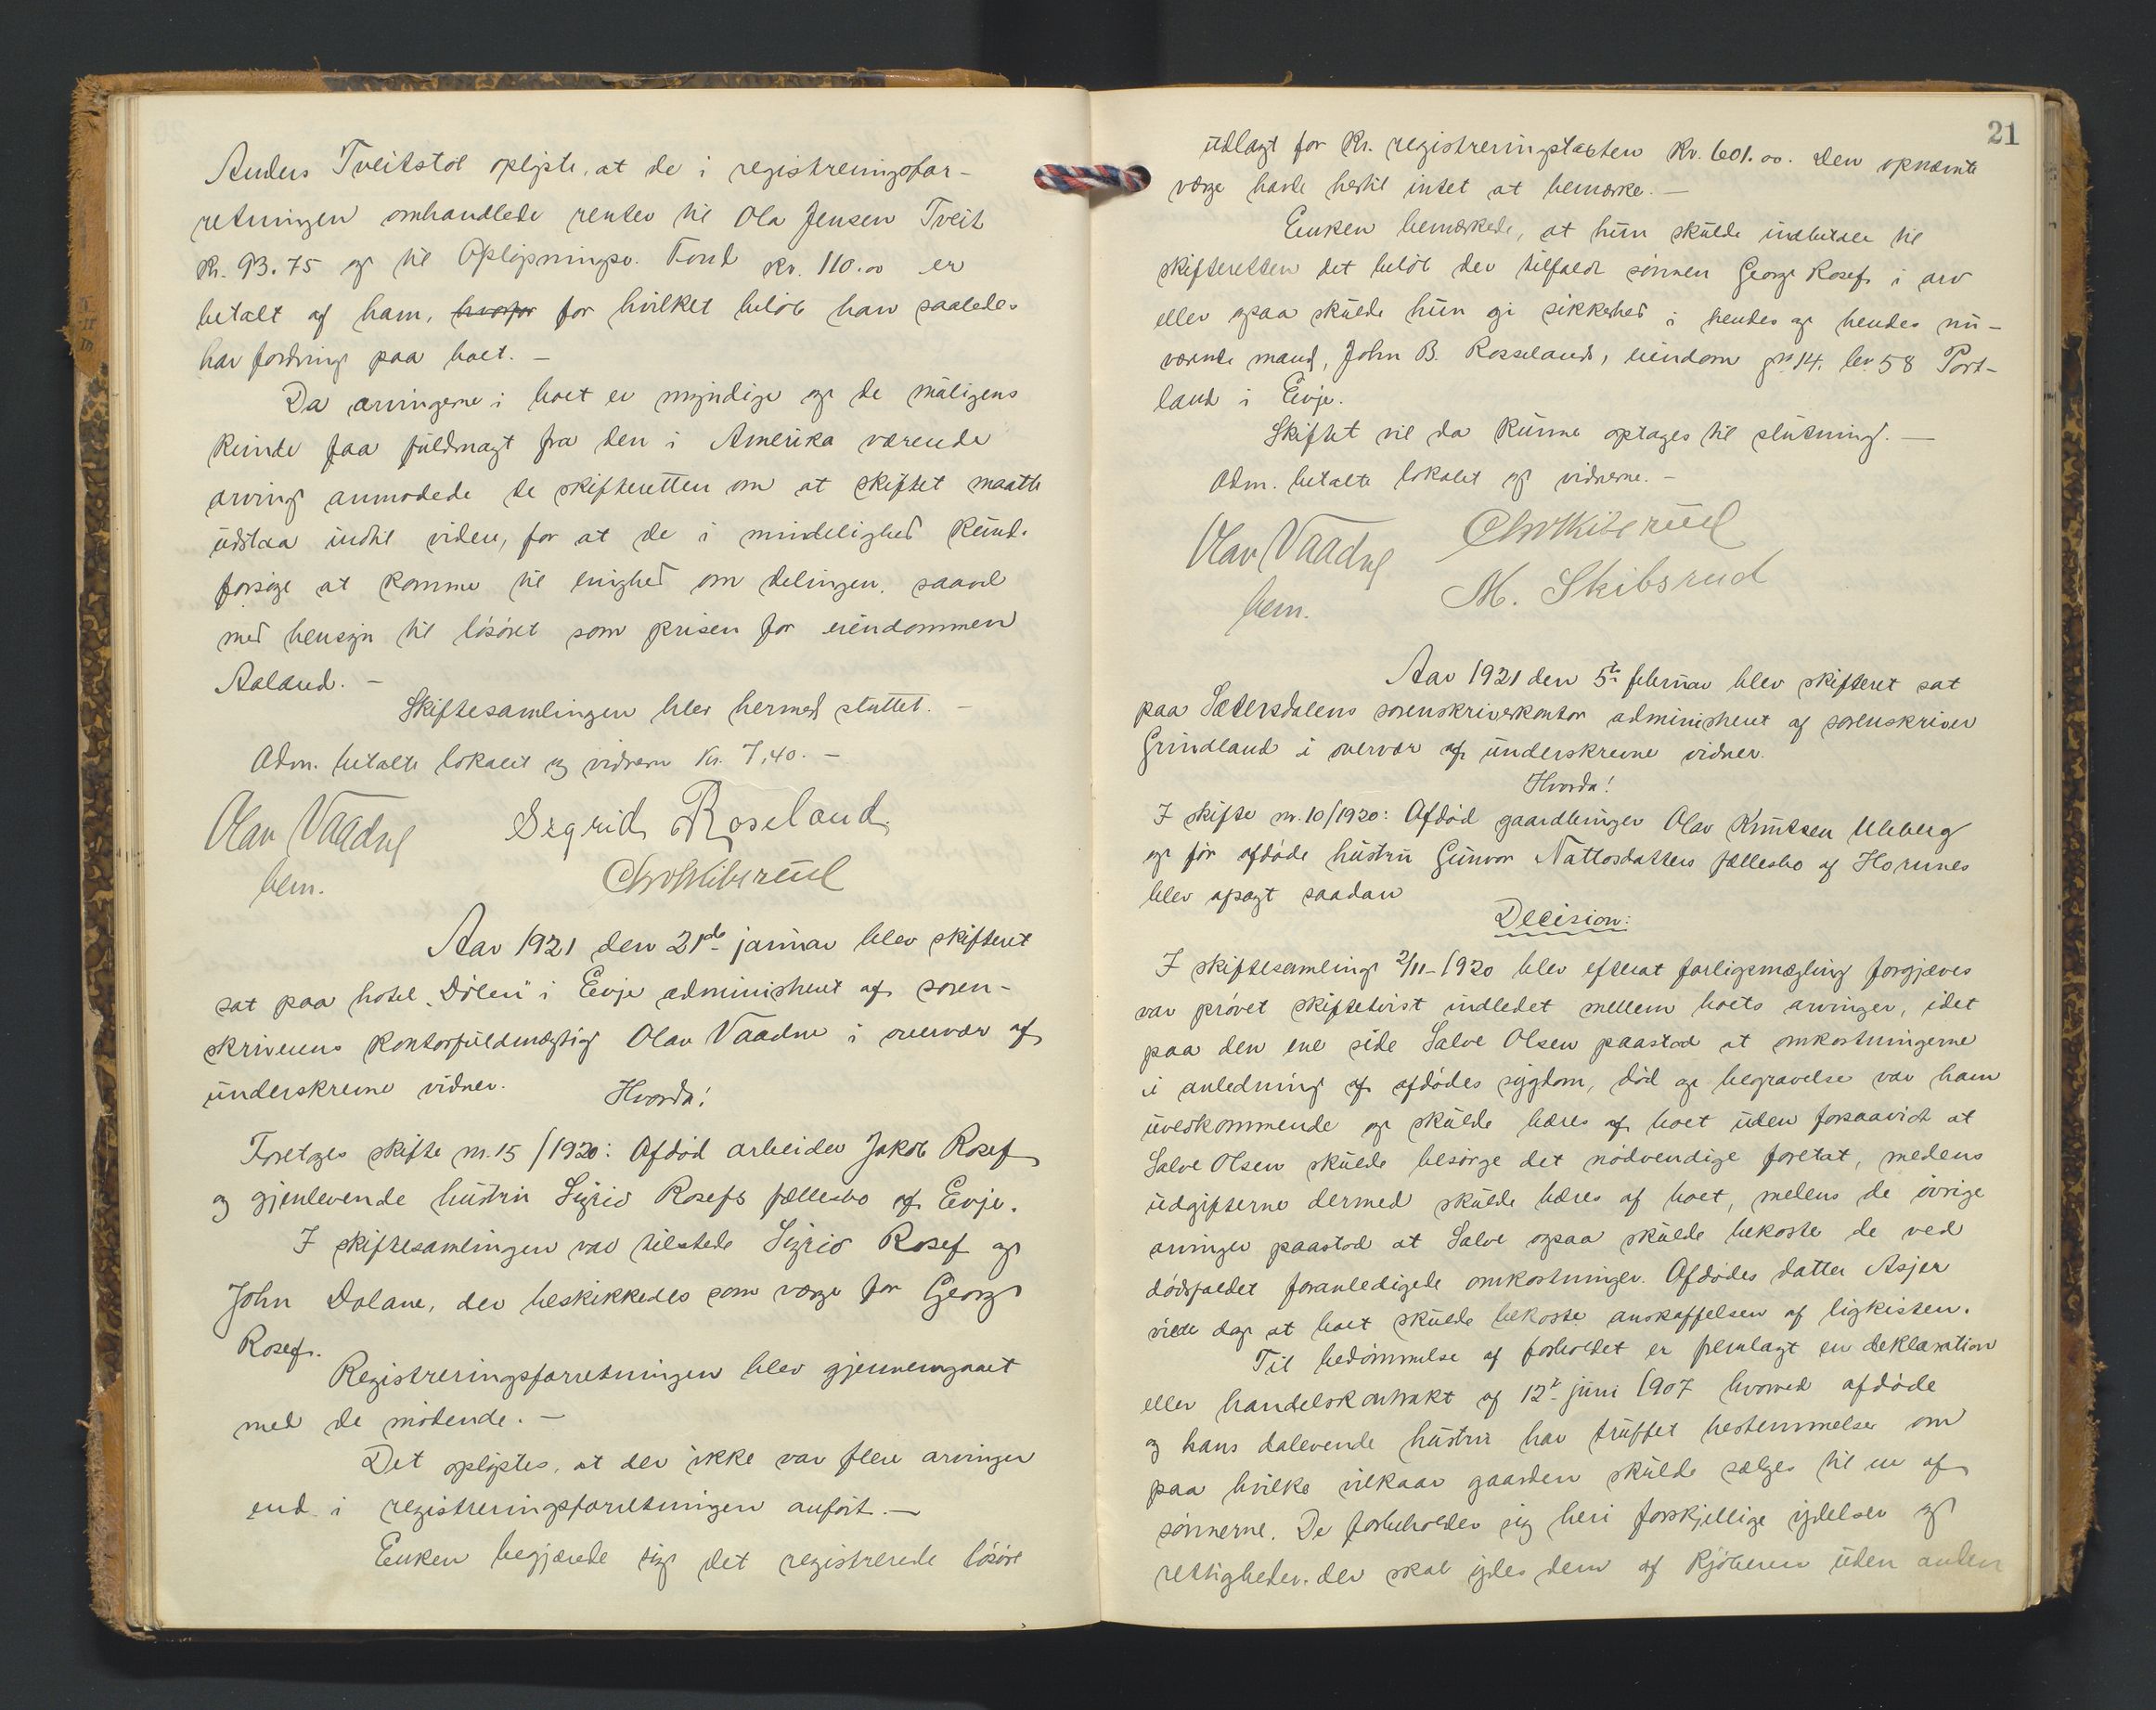 Anders Tveitstøl oplyste, at de i registreringsfor-
retningen omhandlede renter til Ola Jensen Tveit
kr. 93.75 og til Oplysningsv. Fond kr. 110.00 er
betalt af ham, hvorfor for hvilket beløb han saaledes
har fordring paa boet. —
Da arvingerne i boet er myndige og de muligens
kunde faa fuldmagt fra den i Amerika værende
arving anmodede de skifteretten om at skiftet maatte
udstaa indtil videre, for at de i mindelighed kunde
forsøge at komme til enighed om delingen, saavel
med hensyn til løsøret som prisen for eiendommen
Aaland. —
Skiftesamlingen blev hermed sluttet. —
Adm. betalte lokalet og vidnerne kr. 7,40. —
Olav Vaadne Sigrid Roseland.
bem. Chr Skibsrud
Aar 1921 den 21de januar blev skifteret
sat paa hotel „Dølen" i Evje administreret af soren-
skriverens kontorfuldmægtig Olav Vaadne i overvær af
underskrevne vidner. Hvorda!
Foretoges skifte nr. 15/1920: Afdød arbeider Jakob Rosef
og gjenlevende hustru Sigrid Rosefs fællesbo af Evje.
I skiftesamlingen var tilstede Sigrid Rosef og
John Dolane, der beskikkedes som verge for Georg
Rosef.
Registreringsforretningen blev gjennemgaaet
med de møtende. —
Det oplystes, at der ikke var flere arvinger
end i registreringsforretningen anført. —
Enken begjærede sig det registrerede løsøre
21
udlagt for kr. registreringstaksten kr. 601.00. Den opnævnte
verge havde hertil intet at bemerke. —
Enken bemerkede, at hun skulde indbetale til
skifteretten det beløb der tilfaldt sønnen Georg Rosef i arv
eller ogsaa skulde hun gi sikkerhed i hendes og hendes nu-
værende mand, John B. Rosselands, eiendom gn 14. bn 58 Port-
land i Evje.
Skiftet vil da kunne optages til slutning. —
Adm. betalte lokalet og vidnerne. —
Olav Vaadne Chr Skibsrud
bem. M. Skibsrud
Aar 1921 den 5te februar blev skifteret sat
paa Sætersdalens sorenskriverkontor administreret af sorenskriver
Grindland i overvær af underskrevne vidner.
Hvorda!
I skifte nr. 10/1920: Afdød gaardbruger Olav Knutsen Uleberg
og før afdøde hustru Gunvor Nattosdatters fællesbo af Hornnes
blev afsagt saadan
Decision:
I skiftesamling 2/11-1920 blev efterat forligsmægling forgjæves
var prøvet skiftetvist indledet mellem boets arvinger, idet
paa den ene side Salve Olsen paastod at omkostningerne
i anledning af afdødes sygdom, død og begravelse var ham
uvedkommende og skulde bæres af boet uden forsaavidt at
Salve Olsen skulde besørge det nødvendige foretat, medens
udgifterne dermed skulde bæres af boet, medens de øvrige
arvinger paastod at Salve ogsaa skulde bekoste de ved
dødsfaldet foranledigede omkostninger. Afdødes datter Asjer
vilde dog at boet skulde bekoste anskaffelsen af ligkisten.
Til bedømmelse af forholdet er fremlagt en deklaration
eller handelskontrakt af 12te juni 1907 hvorved afdøde
og hans dalevende hustru har truffet bestemmelser om
paa hvilke vilkaar gaarden skulde sælges til en af
sønnerne. De forbeholder sig heri forskjellige ydelser og
rettigheder. der skal ydes dem af kjøberen uden anden